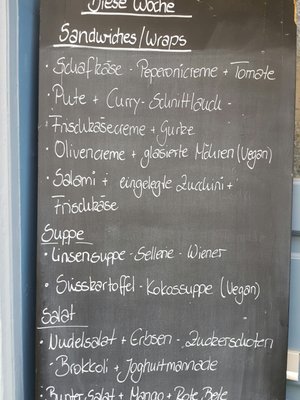 Diese Woche
Sandwiches/Wraps
· Schafkäse - Peperonicreme + Tomate
· Pute + Curry-Schnittlauch -
Frischkäsecreme + Gurke
· Olivencreme + glasierte Möhren (Vegan)
· Salami + eingelegte Zucchini +
Frischkäse
Suppe
· Linsensuppe - Sellerie - Wiener
· Süsskartoffel - Kokossuppe (Vegan)
Salat
· Nudelsalat + Erbsen - Zuckerschoten
- Brokkoli + Joghurtmarinade
· Bunter Salat + Mango + Rote Bete